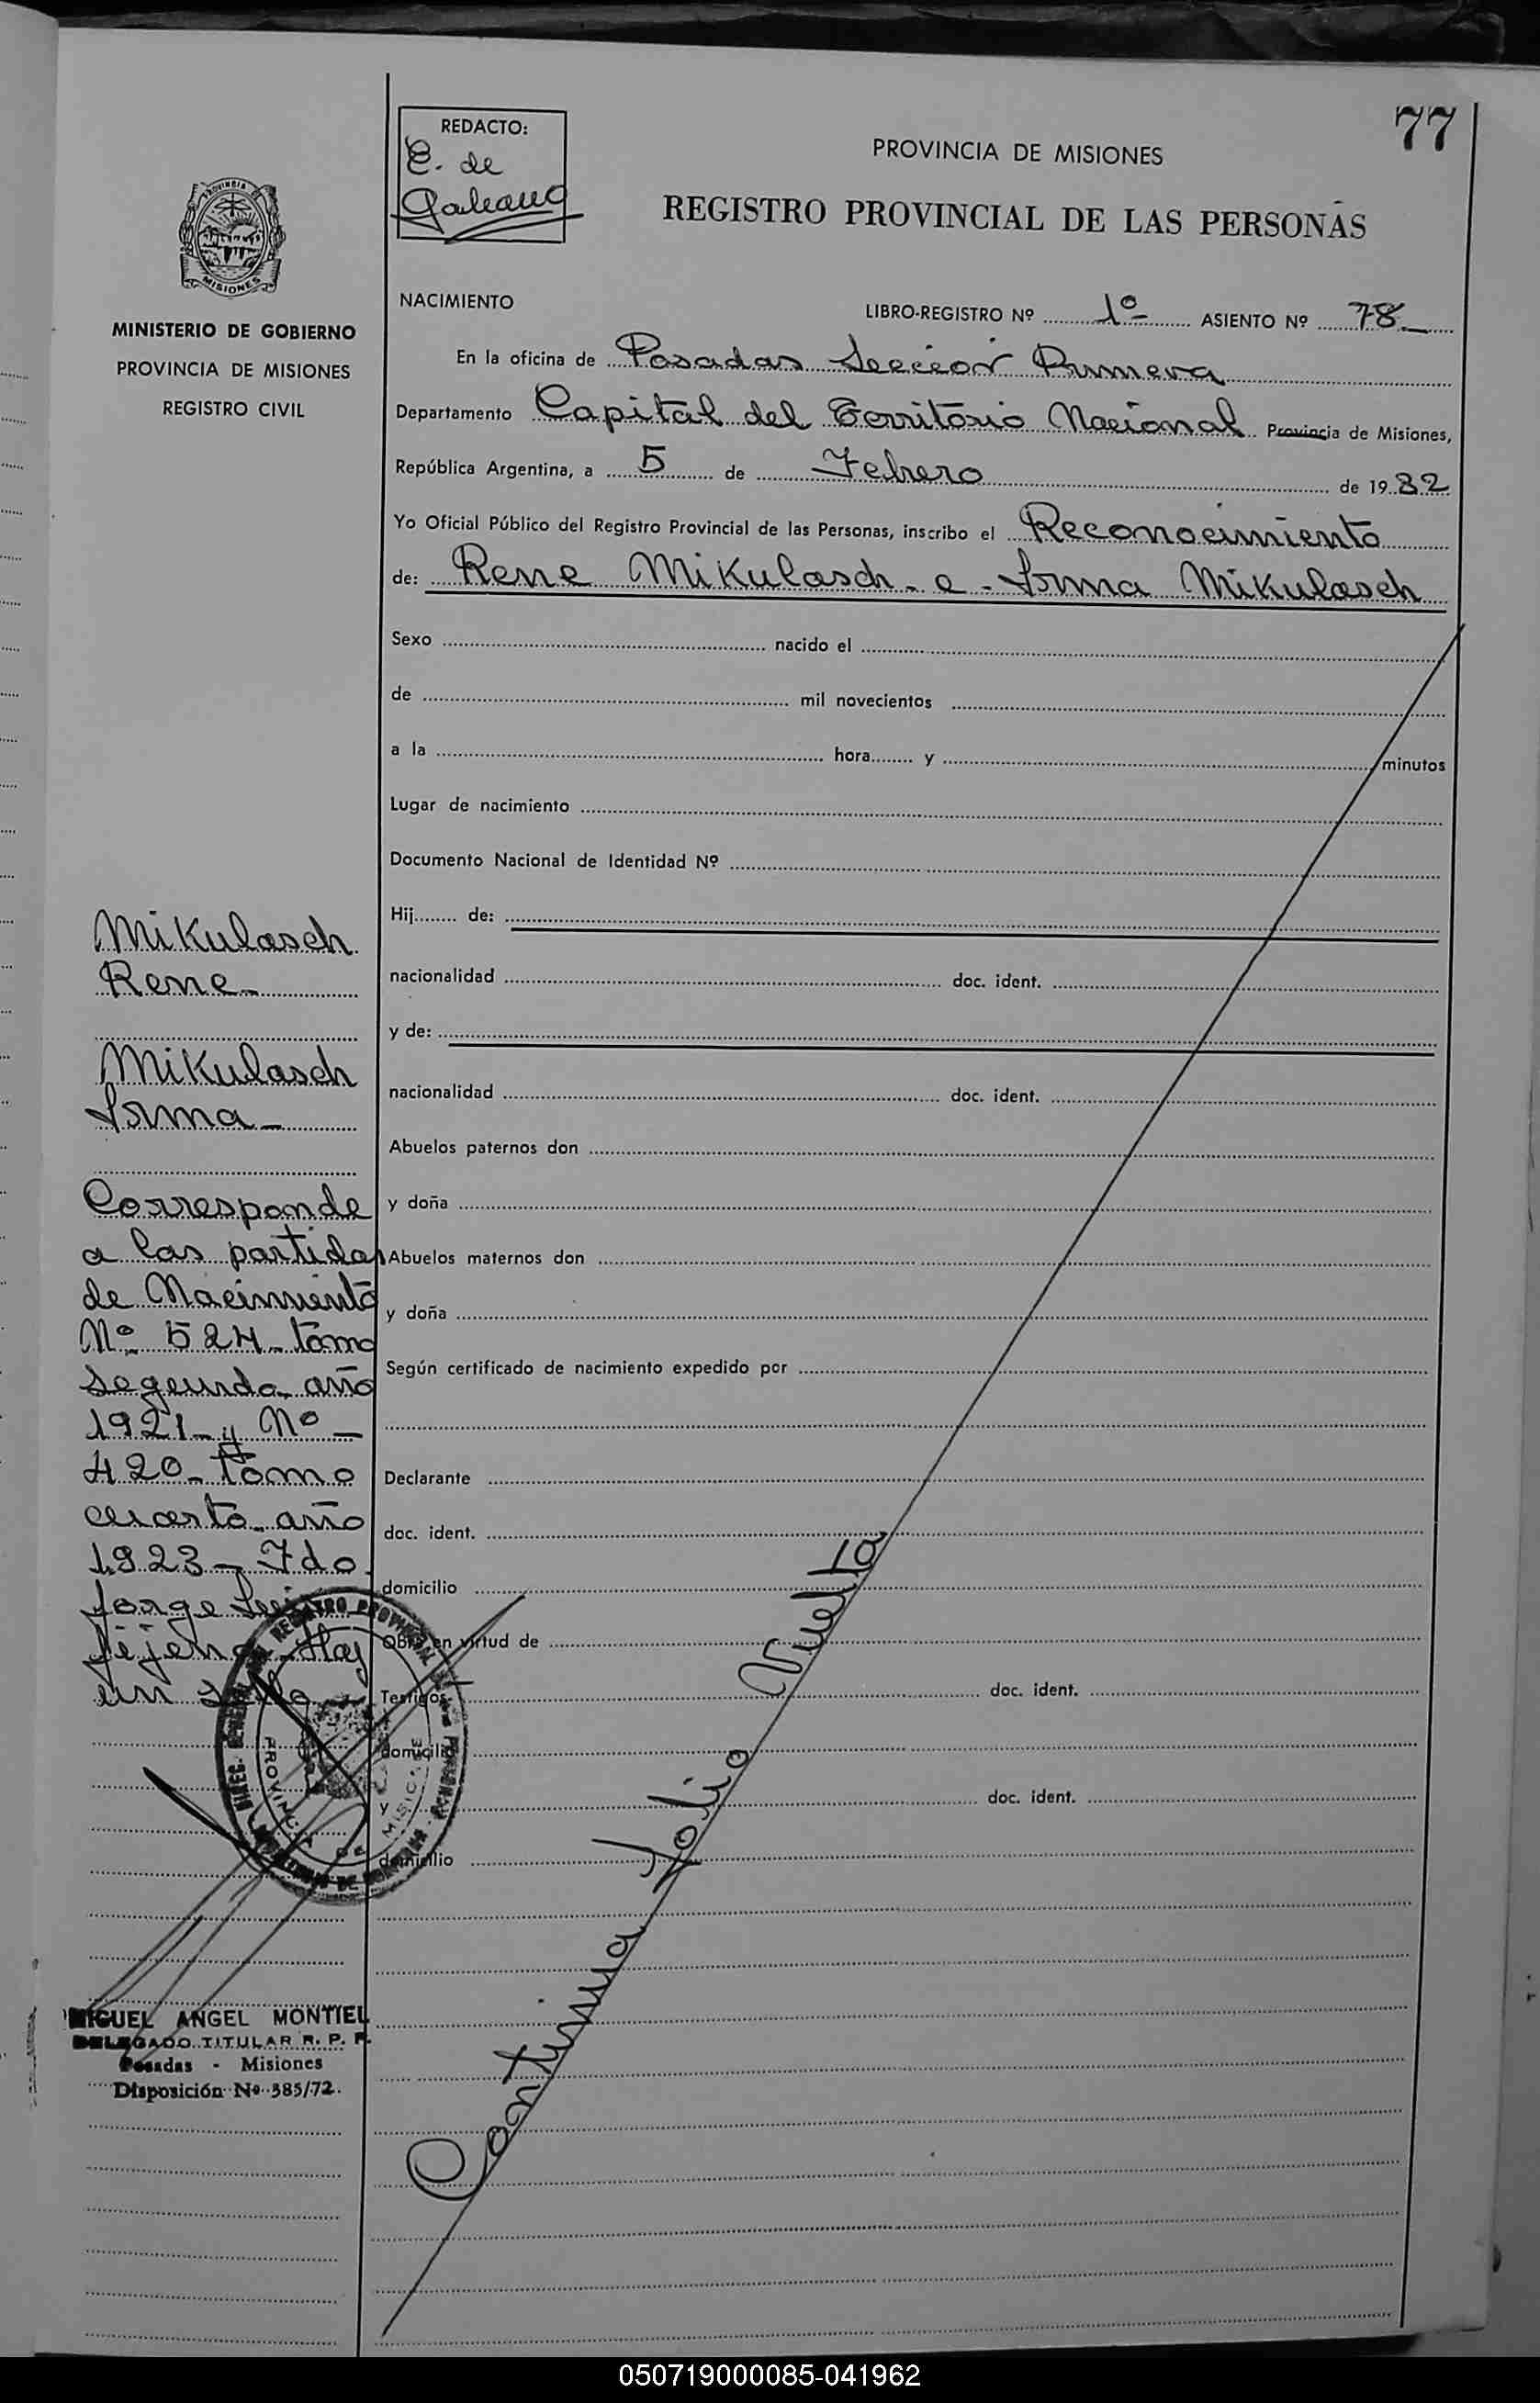 77
REDACTO:
E. de
Galeano
PROVINCIA DE MISIONES
REGISTRO PROVINCIAL DE LAS PERSONAS
PROVINCIA
MISIONES
MINISTERIO DE GOBIERNO
PROVINCIA DE MISIONES
REGISTRO CIVIL
NACIMIENTO
LIBRO-REGISTRO Nº 1º ASIENTO Nº 78
En la oficina de Posadas Sección Primera
Departamento Capital del Territorio Nacional Provincia de Misiones,
República Argentina, a 5 de Febrero de 1932
Yo Oficial Público del Registro Provincial de las Personas, inscribo el Reconocimiento
de: Rene Mikulasch - e - Irma Mikulasch
Sexo nacido el
de mil novecientos
a la hora y minutos
Lugar de nacimiento
Documento Nacional de Identidad Nº
Hij de:
nacionalidad doc. ident.
y de:
nacionalidad doc. ident.
Abuelos paternos don
y doña
Abuelos maternos don
y doña
Según certificado de nacimiento expedido por
Declarante
doc. ident.
domicilio
Obra en virtud de
Testigos doc. ident.
domicilio
y doc. ident.
domicilio
Continua folio vuelta
Mikulasch
Rene
Mikulasch
Irma
Corresponde
a las partidas
de Nacimiento
Nº 524 tomo
segundo año
1921 y Nº
420 tomo
cuarto año
1923 - Fdo
Jorge Luis
Jejena - Hay
un sello
DIREC. GENERAL DEL REGISTRO PROVINCIAL DE LAS PERSONAS
PROVINCIA DE MISIONES
MIGUEL ANGEL MONTIEL
DELEGADO TITULAR R. P. P.
Posadas - Misiones
Disposición Nº 385/72.
050719000085-041962